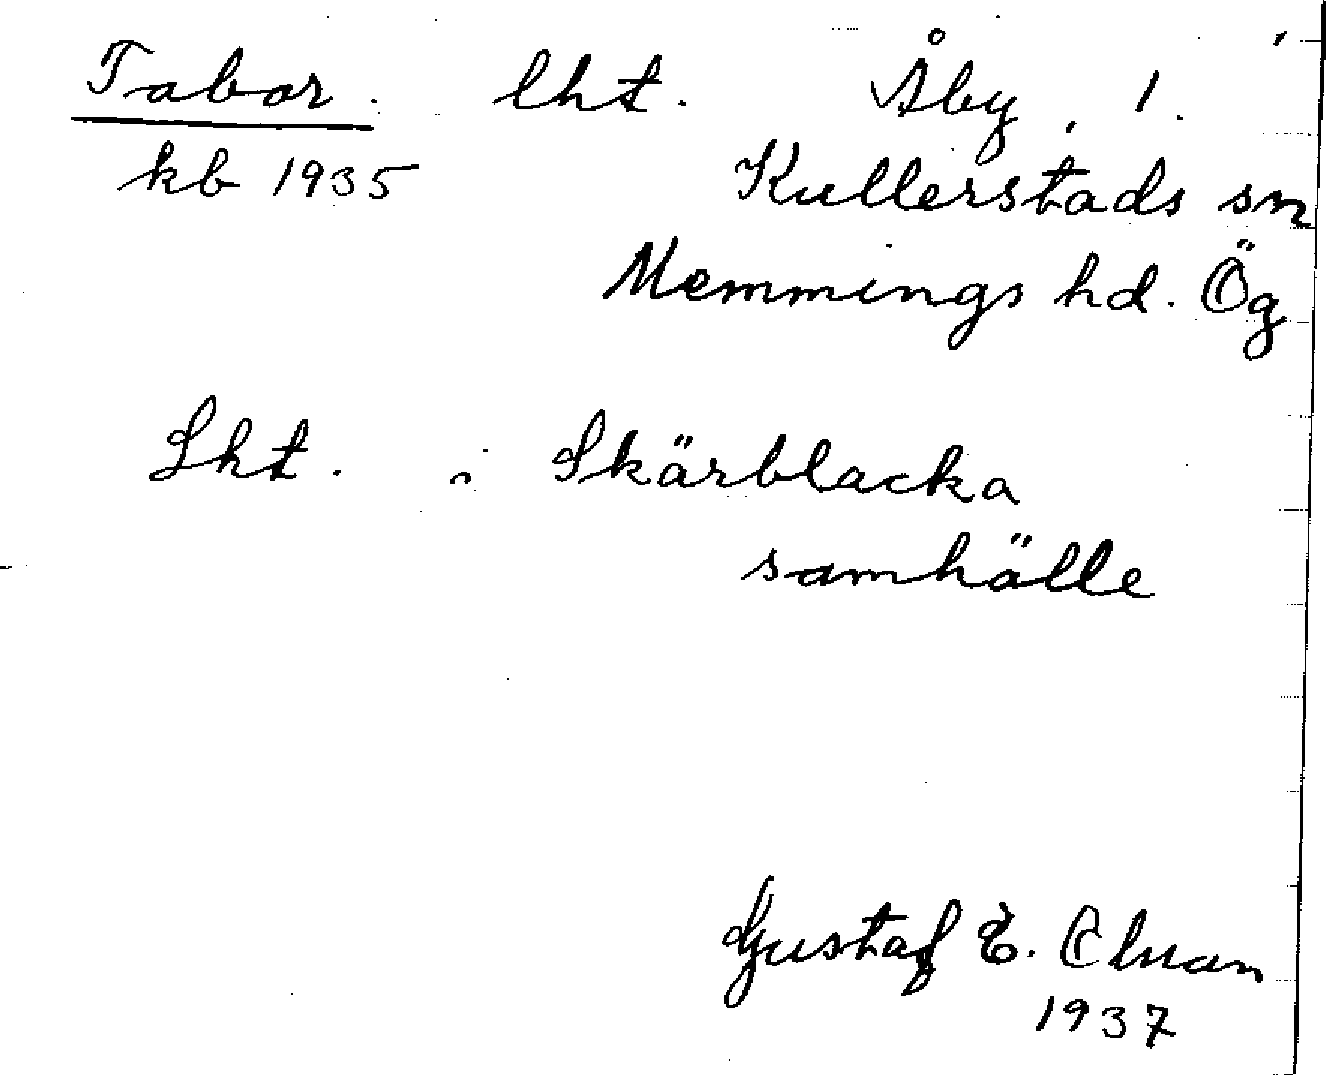 Tabor. lht. Åby, 1.
kb 1935 Kullerstads sn
Memmings hd. Ög
Lht. i Skärblacka
samhälle
Gustaf E.
1937